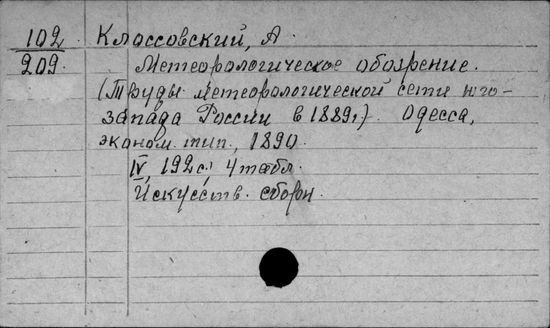 102 Классовский, А
209. Метеорологическое обозрение.
(Труды метеорологической сети юго-
запада России в 1889г.) Одесса,
эконом. тип., 1890.
IV, 192с.; 4 табл.
Искусств. сборн.